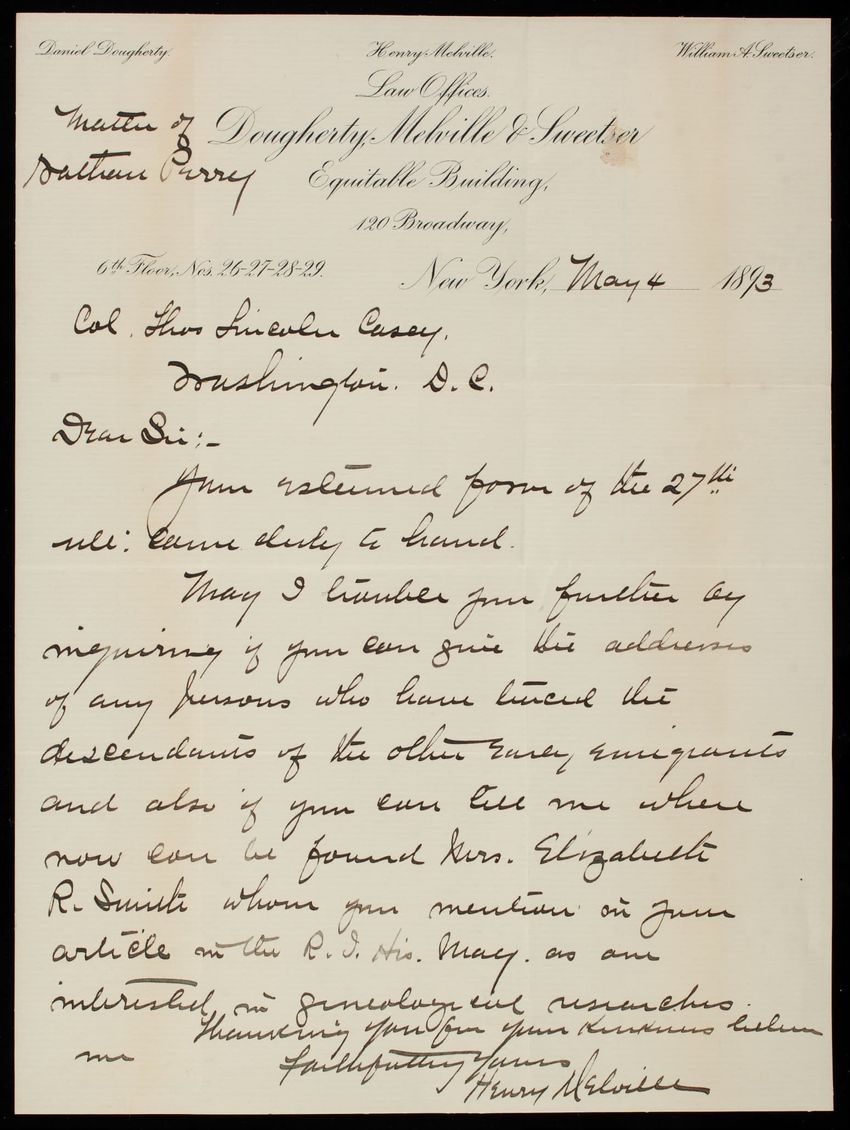 Daniel Dougherty. Henry Melville. William A. Sweetser.
Law Offices.
Dougherty, Melville & Sweetser
Matter of
Nathan Perrey
Equitable Building,
120 Broadway,
6th Floor, Nos. 26-27-28-29.
New York, May 4 1893
Col. Thos Lincoln Casey.
Washington. D.C.
Dear Sir:-
Your esteemed favor of the 27th
ult: came duly to hand.
May I trouble you further by
inquiring if you can give the addresses
of any persons who have traced the
descendants of the other early emigrants
and also if you can tell me where
now can be found Mrs. Elizabeth
R. Smith whom you mention in your
article in the R. I. His. Mag. as one
interested in genealogical researches.
Thanking you for your kindness believe
me Faithfully Yours
Henry Melville